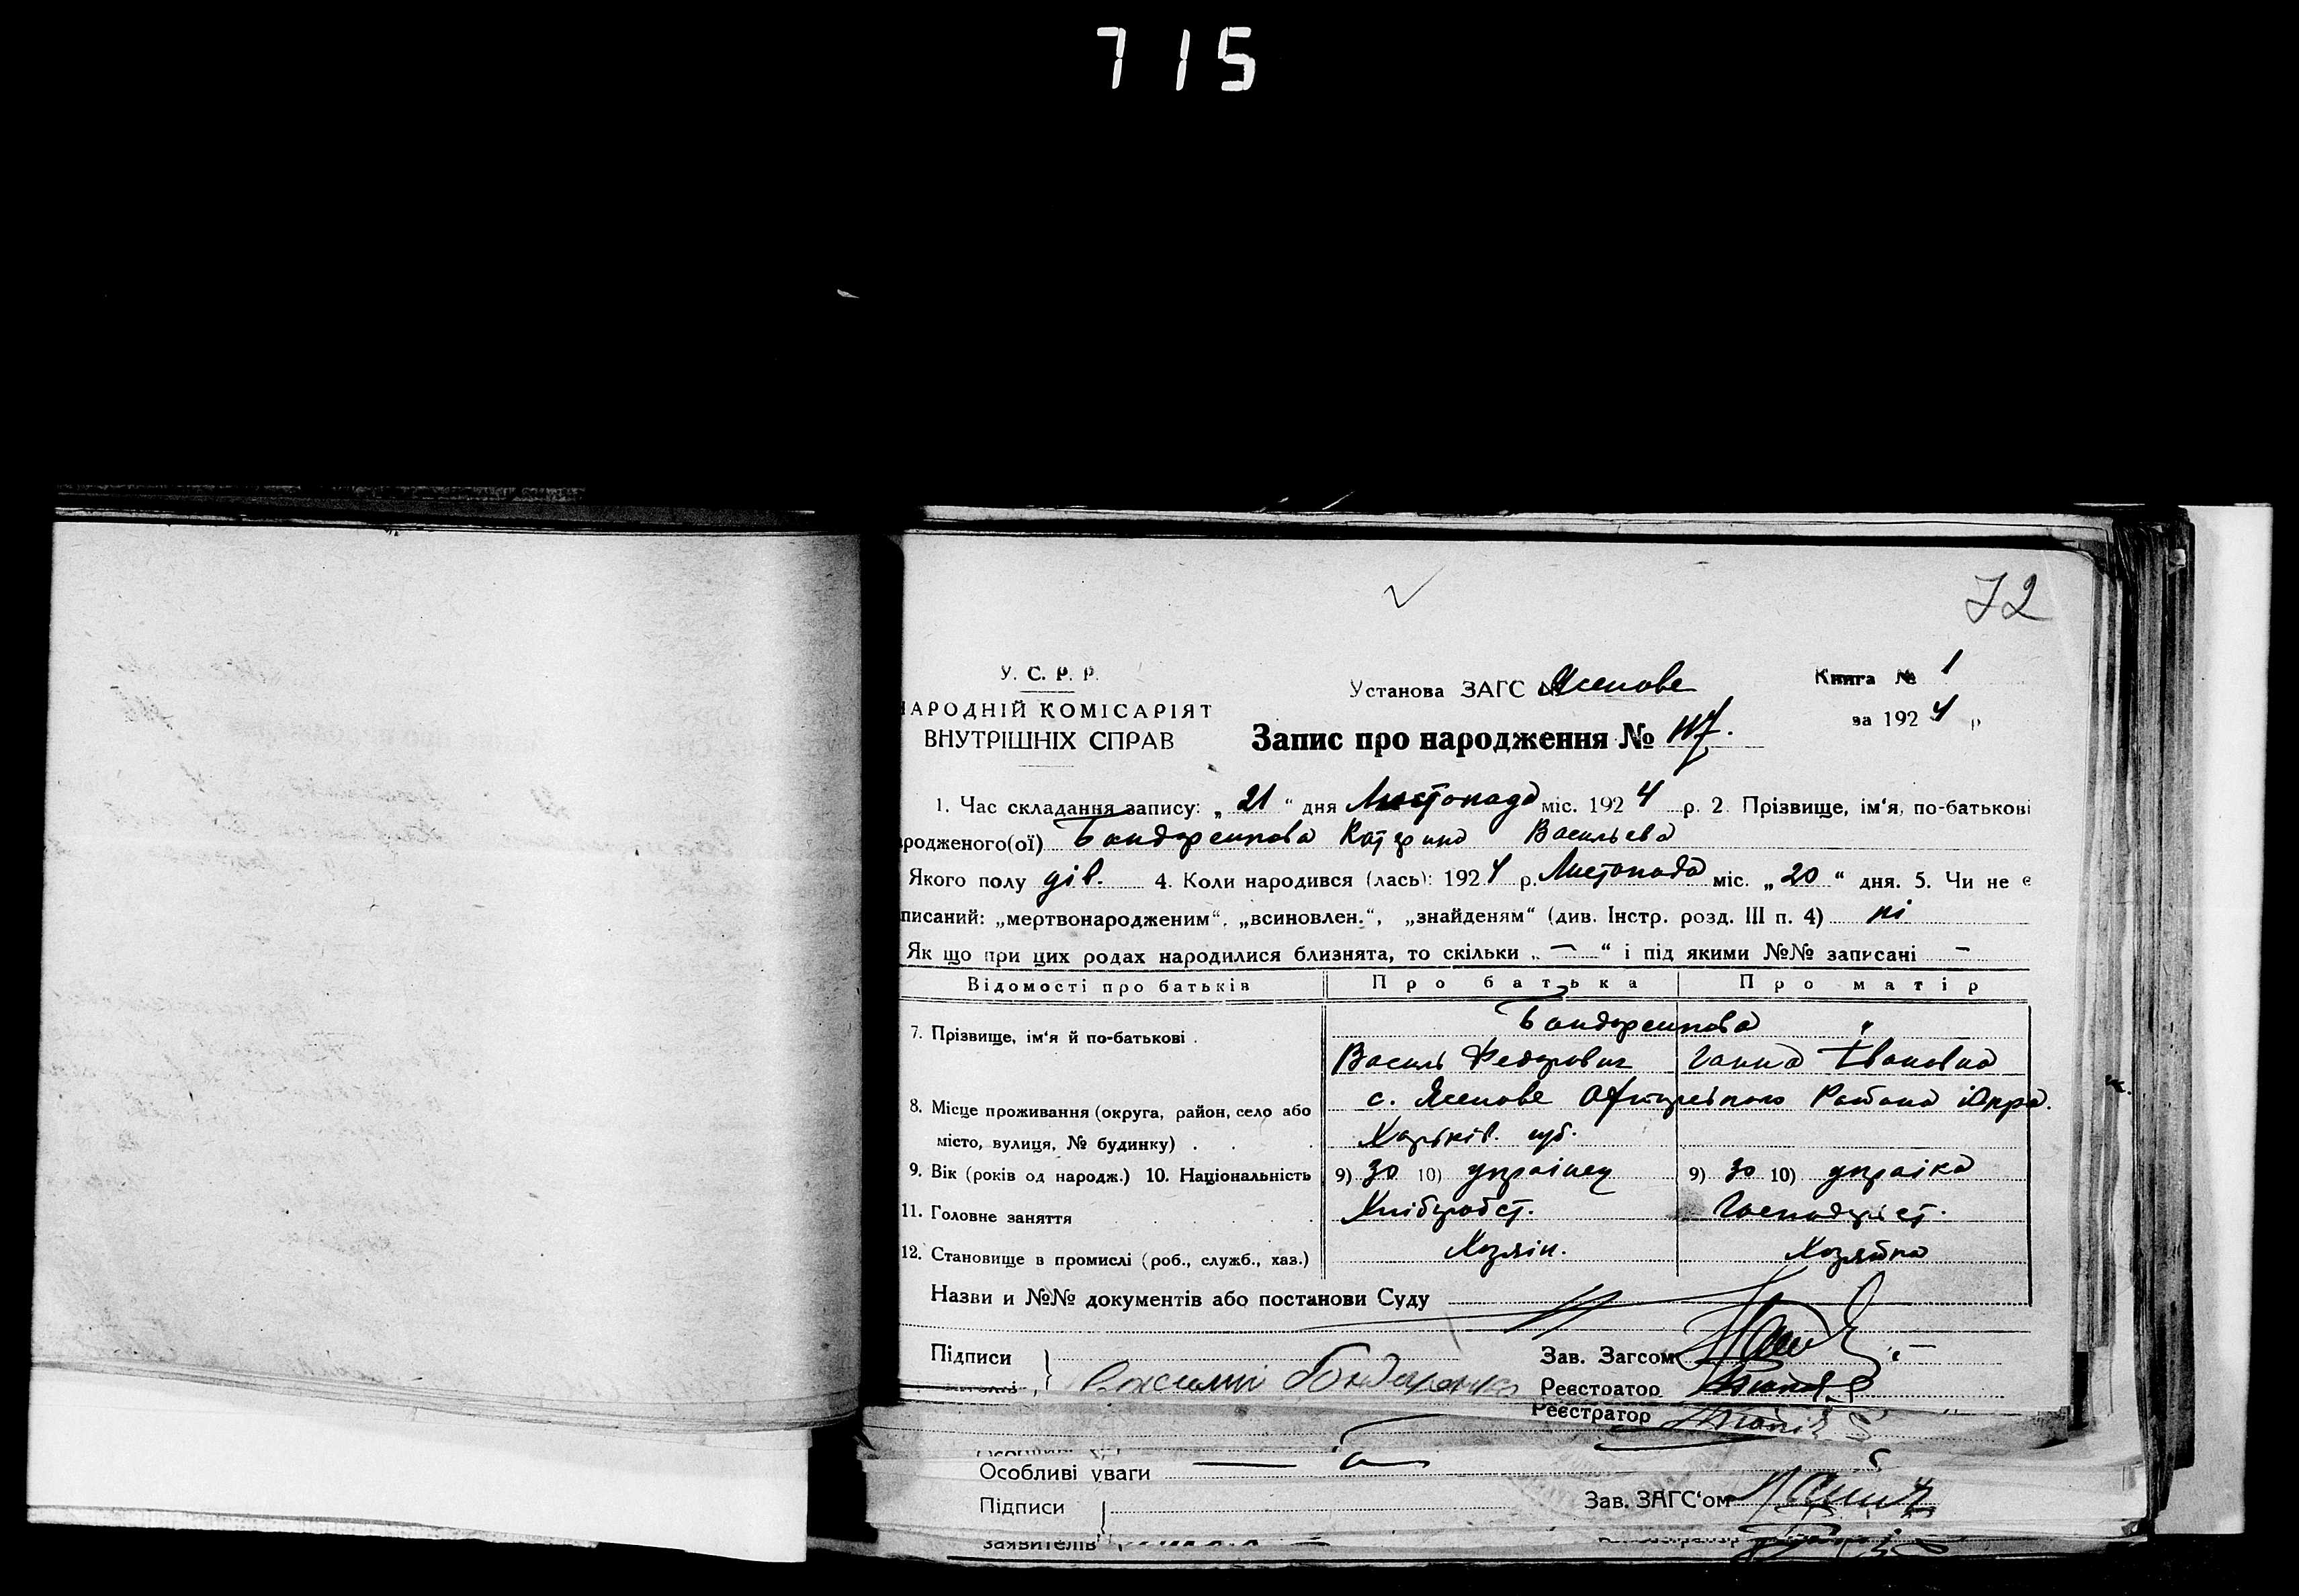 715
72
У. С. Р. Р.
НАРОДНІЙ КОМІСАРІЯТ
ВНУТРІШНІХ СПРАВ
Установа ЗАГС Ясенове
Книга № 1
за 1924 р
Запис про народження № 117.
1. Час складання запису: „21“ дня Листопада міс. 1924 р. 2. Прізвище, ім‘я, по-батькові
родженого(ої) Бондаренкова Катерина Васильева
Якого полу дів. 4. Коли народився (лась): 1924 р. Листопада міс. „20“ дня. 5. Чи не є
писаний: „мертвонародженим“, „всиновлен.“, „знайденям“ (див. Інстр. розд. III п. 4) ні
Як що при цих родах народилися близнята, то скільки „—“ і під якими №№ записані —
Відомості про батьків Про батька Про матір
7. Прізвище, ім‘я й по-батькові . Бондаренкова "
Василь Федорович Ганна Івановна
8. Місце проживання (округа, район, село або с. Ясенове Района
місто, вулиця, № будинку) . . . Харьків. губ.
9. Вік (років од народж.) 10. Національність 9) 30 10) украінец 9) 30 10) украінка
11. Головне заняття Хліборобст. Господарст.
12. Становище в промислі (роб., служб., хаз.) Хозяін. Хозяйка
Назви и №№ документів або постанови Суду
Підписи Зав. Загсом
Василий Бондаренко Реєстратор
Реєстратор
Особливі уваги
Підписи Зав. ЗАГС‘ом
заявителів